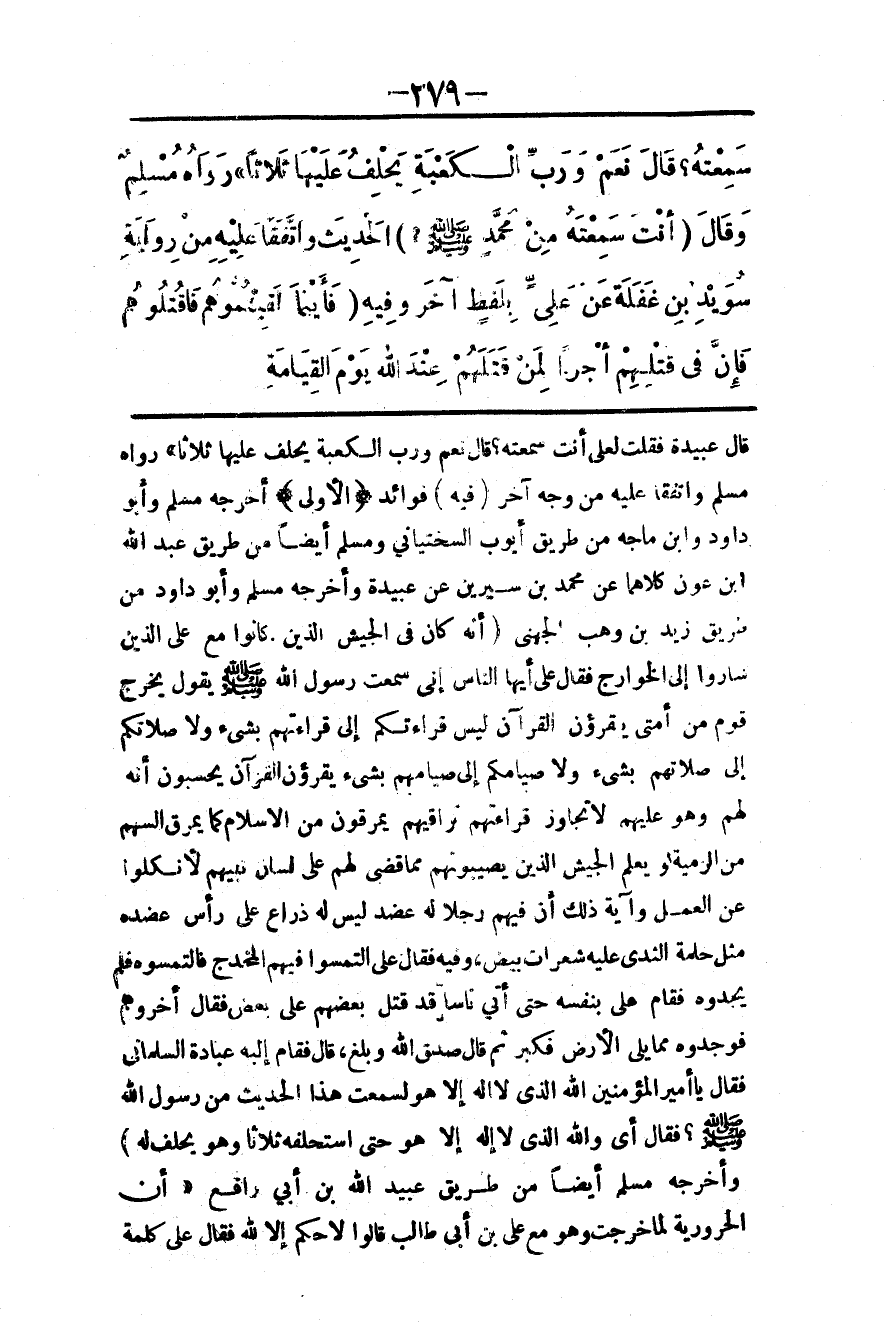 -٢٧٩-
سَمِعْتَهُ؟ قَالَ نَعَمْ وَرَبِّ الْـكَعْبَةِ يَحْلِفُ عَلَيْهَا ثَلَاثًا» رَوَاهُ مُسْلِمٌ
وَقَالَ (أَنْتَ سَمِعْتَهُ مِنْ مُحَمَّدٍ ﷺ ؟) الْحَدِيثَ واتَّفَقَا عَلَيْهِ مِنْ رِوَايَةِ
سُوَيْدِ بنِ غَفَلَةَ عَنْ عَلِيٍّ بِلَفظٍ آخَرَ وفِيهِ (فَأَيْنَمَا لَقِيتُمُوهُم فَاقْتُلُوهُم
فَإِنَّ فى قتْلِهِمْ أَجْرًا لِمَنْ قَتَلَهُمْ عِنْدَ الله يَوْمَ القِيَامَةِ
قال عبيدة فقلت لعلى أنت سمعته؟ قال نعم ورب الـكعبة يحلف عليها ثلاثا» رواه
مسلم واتفقا عليه من وجه آخر (فيه) فوائد ﴿الأولى﴾ أخرجه مسلم وأبو
داود وابن ماجه من طريق أيوب السختياني ومسلم أيضـاً من طريق عبد الله
ابن عون كلاهما عن محمد بن سـيرين عن عبيدة وأخرجه مسلم وأبو داود من
طريق زيد بن وهب الجهنى (أنه كان فى الجيش الذين كانوا مع على الذين
ساروا إلى الخوارج فقال على أيها الناس إنى سمعت رسول الله ﷺ يقول يخرج
قوم من أمتى يقرؤن القرآن ليس قراءتـكم إلى قراءتهم بشىء ولا صلاتكم
إلى صلاتهم بشىء ولا صيامكم إلى صيامهم بشىء يقرؤن القرآن يحسبون أنه
لهم وهو عليهم لا تجاوز قراءتهم تراقيهم يمرقون من الاسلام كما يمرق السهم
من الرمية لو يعلم الجيش الذين يصيبونهم ما قضى لهم على لسان نبيهم لأنـكلوا
عن العمـل وآية ذلك أن فيهم رجلا له عضد ليس له ذراع على رأس عضده
مثل حلمة الثدى عليه شعرات بيض، وفيه فقال على التمسوا فيهم المخدج فالتمسوه فلم
يجدوه فقام على بنفسه حتى أتي ناسا قد قتل بعضهم على بعض فقال أخروهم
فوجدوه مما يلى الأرض فكبر ثم قال صدق الله وبلغ، قال فقام إليه عبادة السلمانى
فقال يا أمير المؤمنين الله الذى لا اله إلا هو لسمعت هذا الحديث من رسول الله
ﷺ ؟ فقال أى والله الذى لا إله إلا هو حتى استحلفه ثلاثا وهو يحلف له )
وأخرجه مسلم أيضـاً من طـريق عبيد الله بن أبي رافـع « أن
الحرورية لما خرجت وهو مع على بن أبى طالب قالوا لا حكم إلا لله فقال على كلمة